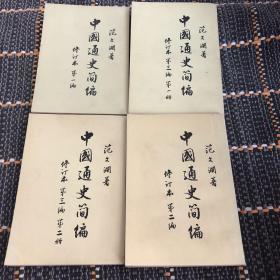 范文澜著
中國通史简编
修订本 第一编
范文澜著
中國通史简编
修订本 第三编 第一册
范文澜著
中國通史简编
修订本 第三编 第二册
范文澜著
中國通史简编
修订本 第二编